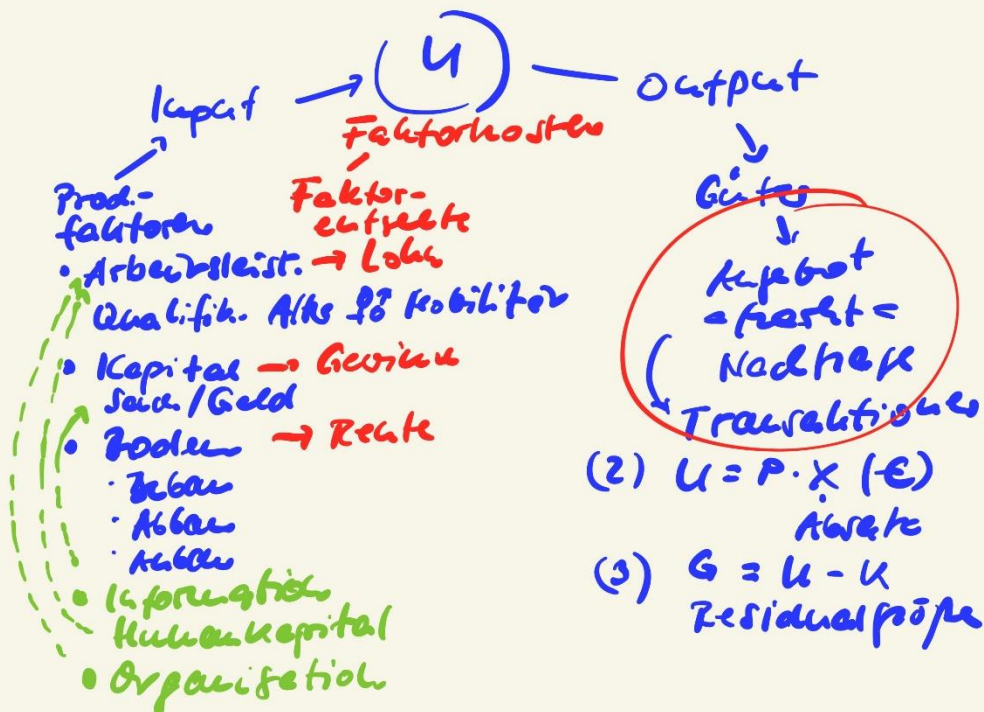 U
Input
Output
Faktorkosten
Prod.-
faktoren
Faktor-
entgelte
• Arbeitsleist. → Lohn
Qualifik. Alter ♀♂ Mobilität
• Kapital → Gewinn
Sach/Geld
• Boden → Rente
· Bebau
· Abbau
· Anbau
• Information
Humankapital
• Organisation
Güter
Angebot
Nachfrage
Transaktionen
(2) U = P · X (€)
Absatz
(3) G = U - K
Residualgröße